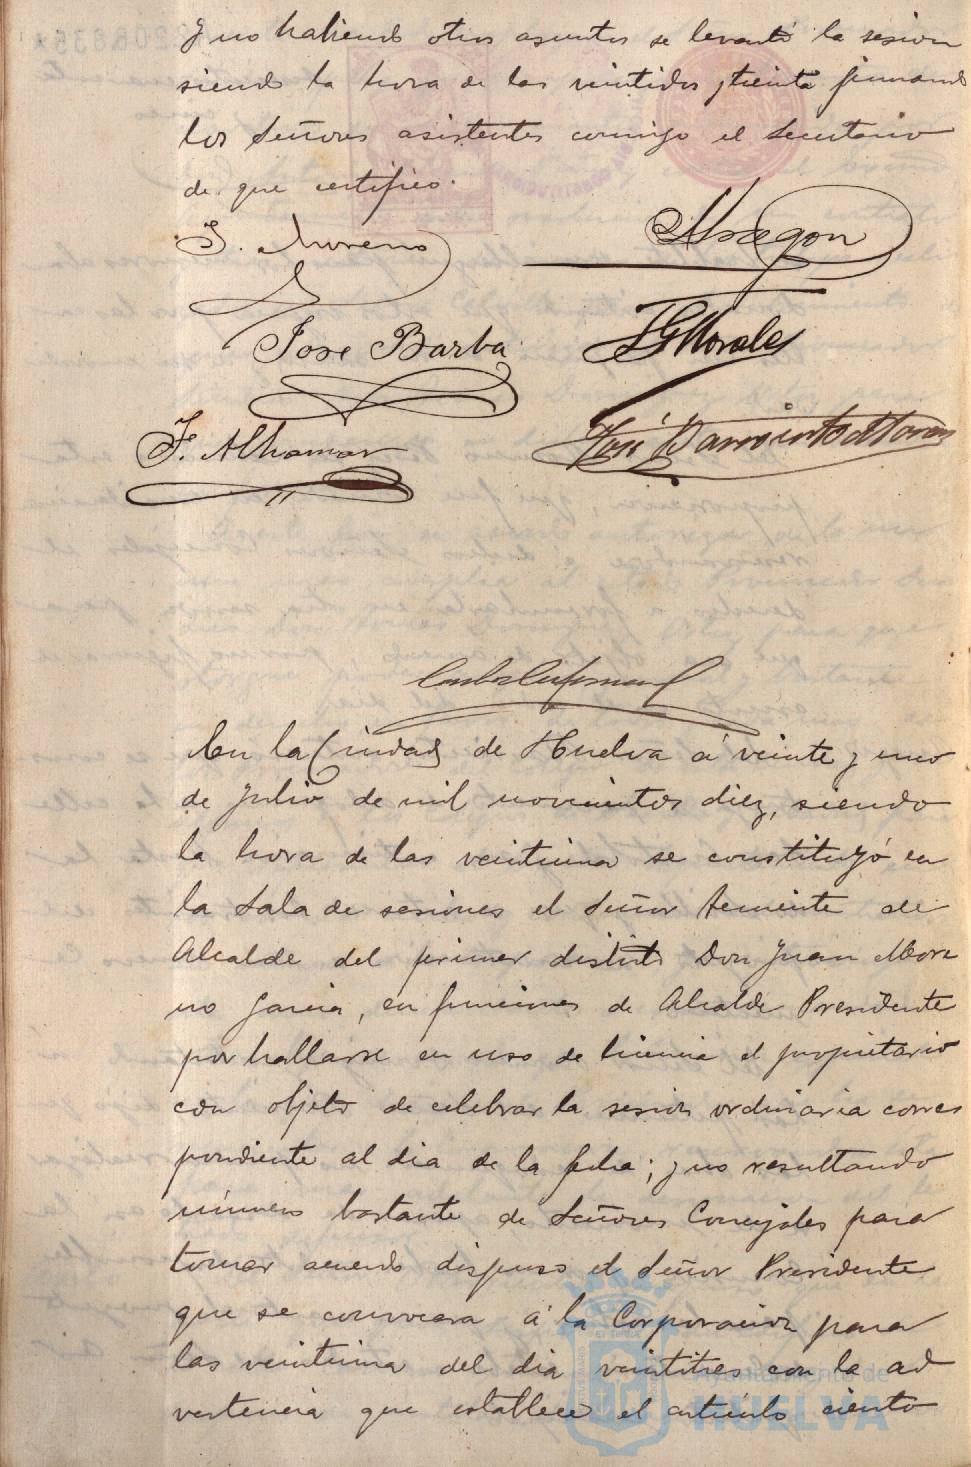 y no habiendo otros asuntos se levantó la sesion
siendo la hora de las veintidos y treinta firmando
los Señores asistentes conmigo el Secretario
de que certifico.
J. Moreno
Aragon
José Barba
J G Morales
F. Alhamar
José Barrientos
En la Ciudad de Huelva á veinte y uno
de Julio de mil novecientos diez, siendo
la hora de las veintiuna se constituyó en
la Sala de sesiones el Señor Teniente de
Alcalde del primer distrito Don Juan More
no Garcia, en funciones de Alcalde Presidente
por hallarse en uso de licencia el propietario
con objeto de celebrar la sesion ordinaria corres
pondiente al dia de la fecha; y no resultando
número bastante de Señores Concejales para
tomar acuerdo dispuso el Señor Presidente
que se convocara á la Corporacion para
las veintiuna del dia veintitres con la ad
vertencia que establece el artículo ciento
Ayuntamiento de
HUELVA